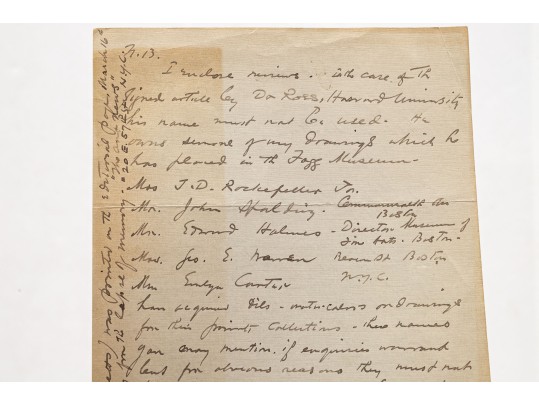 N.B.
I enclose reviews. In the case of the
signed article by Dr Ross, Harvard University
his name must not be used. He
owns several of my drawings which he
has placed in the Fogg Museum.
Mrs J. D. Rockefeller Jr.
Mr. John Spalding. Commonwealth Av Boston
Mr. Edward Holmes - Director Museum of Fine Arts. Boston.
Mrs. Geo. E. Warren Revere St Boston
Mrs Evelyn Carter N.Y.C.
have acquired Oils - water-colors or Drawings
for their private collections - these names
you may mention if enquiries warrant
but for obvious reasons they must not
was printed on the editorial page March 16